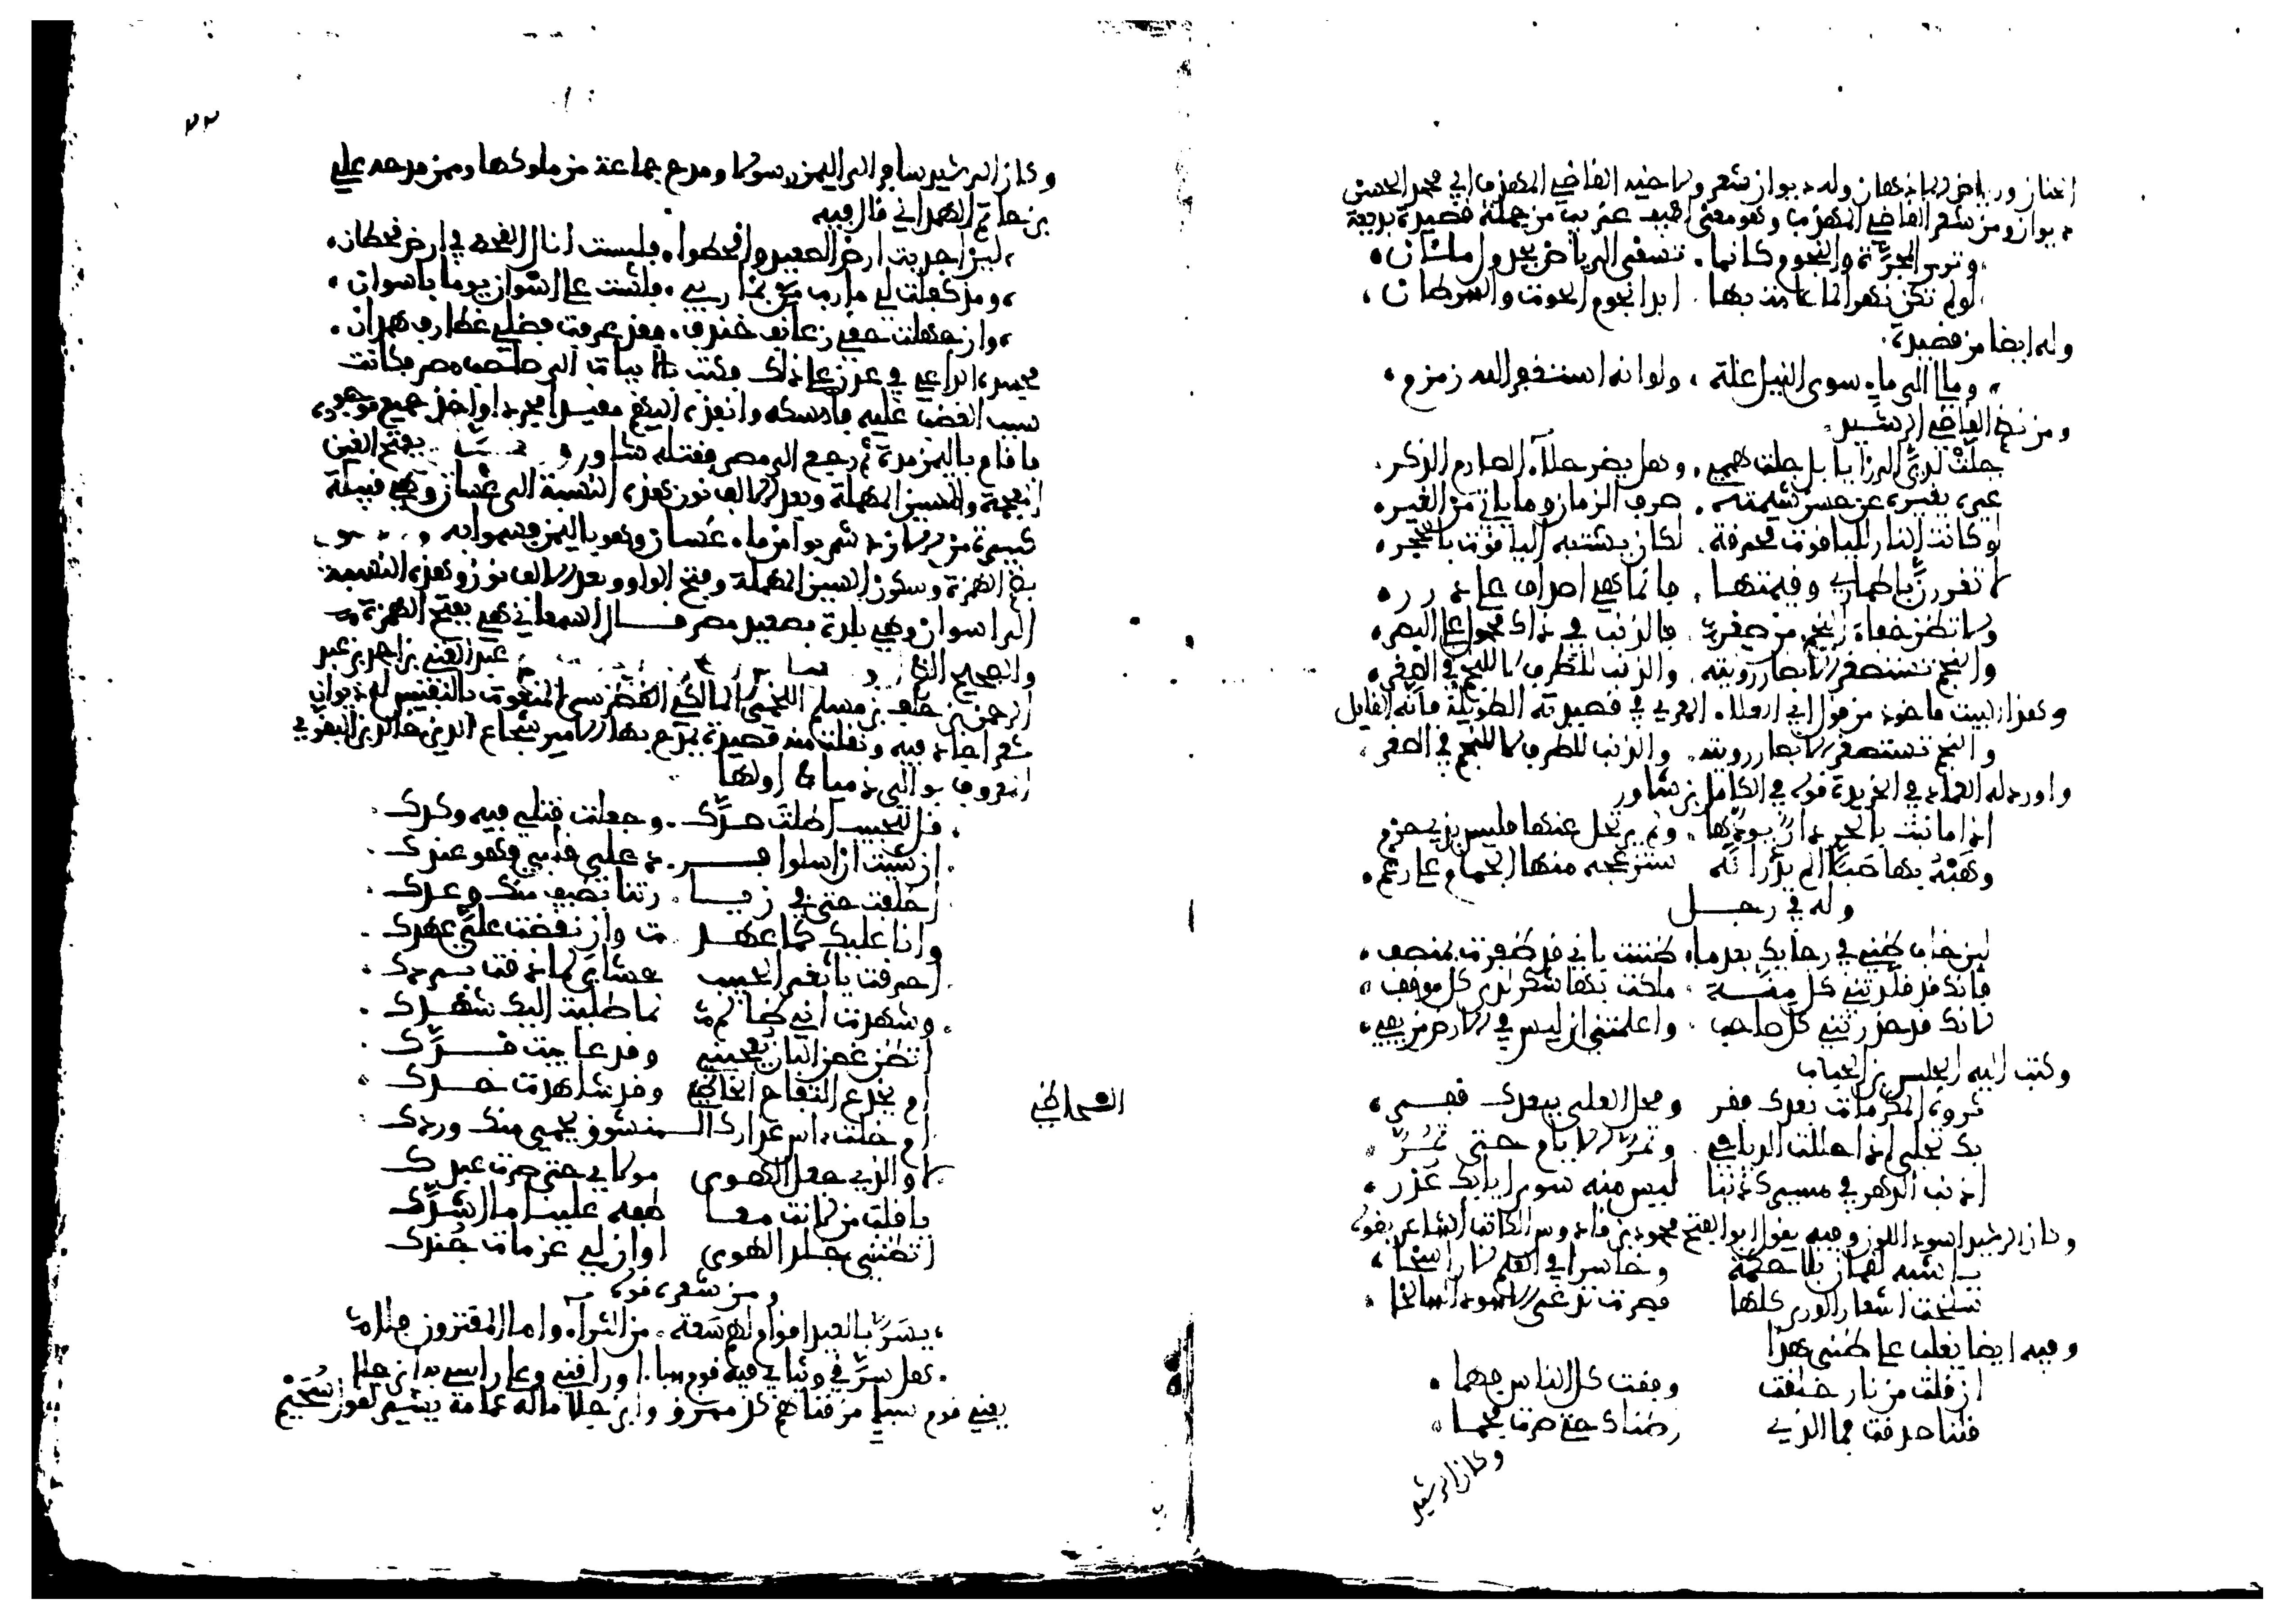 الجنان ورياض الاذهان وله ديوان شعر ولاخيه القاضي المهذب ابي محمد الحسن
ديوان ومن شعر القاضي المهذب وهو معنى لطيف غريب من جملة قصيدة بديعة
وترى المجرة والنجوم كانما تسقي الرياض بجدول ملئان
لو لم تكن نهرا لما عامت بها ابدا نجوم الحوت والسرطان
وله ايضا من قصيدة
وما لي الى ماء سوى النيل غلة ولو انه استغفر الله زمزم
ومن نظم القاضي الرشيد
جلت لدي الرزايا بل جلت هممي وهل يضر جلاء الصارم الذكر
غيري يغيره عن حسن شيمته صرف الزمان وما ياتي من الغير
لو كانت النار للياقوت محرقة لكان يشتبه الياقوت بالحجر
لا تغررن باطماري وقيمتها فانما هي اصداف على درر
ولا تظن خفاء النجم من صغر فالذنب في ذاك محمول على البصر
والنجم تستصغر الابصار رويته والذنب للطرف لا للنجم في الصغر
وهذا البيت ماخوذ من قول ابي العلاء المعري في قصيدته الطويلة فانه القايل
والنجم تستصغر الابصار رويته والذنب للطرف لا للنجم في الصغر
واورد له العماد في الخريدة قوله في الكامل بن شاور
اذا ما نبت بالحر دار يودها ولم يرتحل عنها فليس بذي حزم
وهبه بها صبا الم يدر انه سترعجه منها الحمام على رغم
وله في رجل
لين خاب ظني في رجايك بعد ما ظننت باني قد ظفرت بمنصف
فانك قد قلدتني كل منة ملكت بها شكري لدى كل موقف
لانك قد حذرتني كل صاحب واعلمتني ان ليس في الارض من يفي
وكتب اليه الجليس بن الحباب
ثروة المكرمات بعدك فقر ومحل العلى ببعدك قفر
بك تجلى اذا حللت الدياجي وتمر الايام حتى تمر
اذنب الدهر في مسيرك ذنبا ليس منه سوى ايابك عذر
وكان الرشيد اسود اللون وفيه يقول ابو الفتح محمود بن قادوس الكاتب الشاعر يهجوه
يا شبه لقمان بلا حكمة وخاسرا في العلم لا راسخا
سلخت اشعار الورى كلها فصرت تدعى الاسود السالخا
وفيه ايضا يغلب على ظني هذا
ان قلت من نار خلقت وفقت كل الناس فهما
قلنا صدقت فما الذي اطفاك حتى صرت فحما
وكان الرشيد
٢٢
وكان الرشيد سافر الى اليمن رسولا ومدح جماعة من ملوكها وممن مدحه علي
بن حاتم الهمداني قال فيه
لين اجدبت ارض الصعيد واقحطوا فلست انال القحط في ارض قحطان
ومذ كفلت لي مارب بماربي فلست على اسوان يوما باسوان
وان جهلت حقي زعانف خندف فقد عرفت فضلي غطارف همدان
فحسده الداعي في عدن على ذلك فكتب بالابيات الى صاحب مصر فكانت
سبب الغضب عليه فامسكه وانفذه اليهم مقيدا مجردا واخذ جميع موجوده
فاقام باليمن مدة ثم رجع الى مصر فقتله شاور بفتح الغين
المعجمة والسين المهملة وبعد الالف نون هذه النسبة الى غسان وهي قبيلة
كبيرة من الازد شربوا من ماء غسان وهو باليمن فسموا به
بضم الهمزة وسكون السين المهملة وفتح الواو وبعد الالف نون وهذه النسبة
الى اسوان وهي بلدة بصعيد مصر قال السمعاني هي بفتح الهمزة
والصحيح الضم عبد الغني بن احمد بن عبد
الرحمن بن خلف بن مسلم اللخمي المالكي القطرسي المنعوت بالنفيس له ديوان
شعر اجاد فيه ونقلت منه قصيدة يمدح بها الامير شجاع الدين جلدك التقوي
المعروف بوالي دمياط اولها
قل للحبيب اطلت صدك وجعلت قتلي فيه وكدك
ان شيت ان اسلوا فرد علي قلبي فهو عندك
اخلفت حتى في زيارتنا بطيف منك وعدك
وانا عليك كما عهدت وان نقضت علي عهدك
احرقت يا ثغر الحبيب حشاي لما ذقت بردك
وشهدت اني ظالم لما طلبت اليك شهدك
اتظن غصن البان يعجبني وقد عاينت قدك
ام يخدع التفاح الحاظي وقد شاهدت خدك
الحاظي
ام خلت اس عذارك المنشوق يحمي منك وردك
لا والذي جعل الهوى مولاي حتى صرت عبدك
يا قلب من لانت معاطفه علينا ما اشدك
اتظنني جلد الهوى او ان لي عزمات جندك
ومن شعره قوله
يسر بالعيد اقوام لهم سعة من الثراء واما المقترون فلا
هل سرني وثيابي فيه قوم سبا او راقني وعلى راسي به ابن جلا
يعني قوم سبا مزقناهم كل ممزق وابن جلا ماله عمامة يشير لقول سحيم